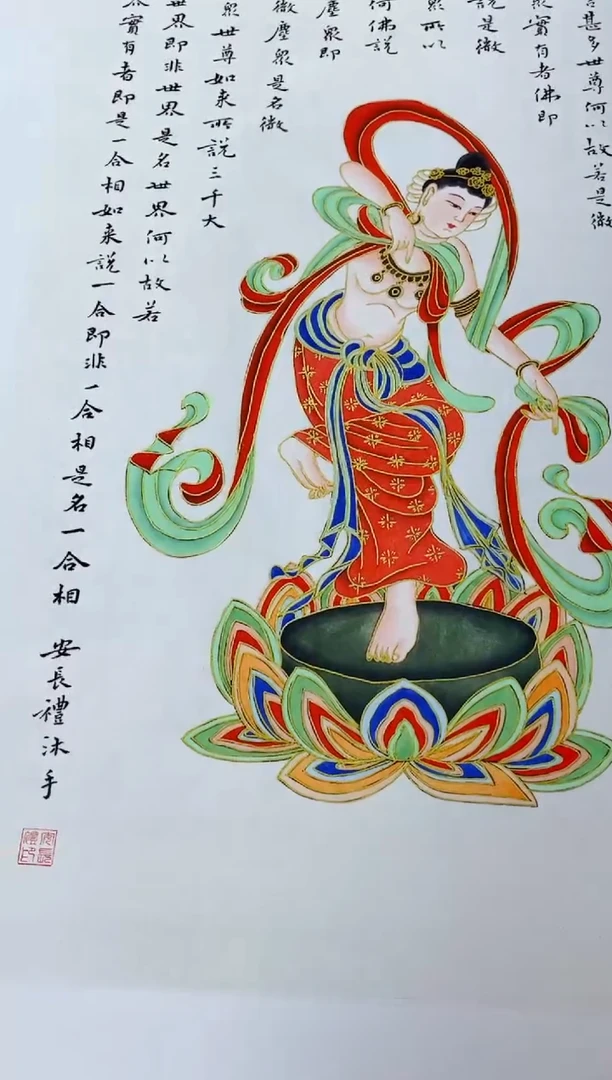 甚多世尊何以故若是微
眾實有者佛即
説是微
眾所以
何佛説
塵眾即
微塵眾是名微
眾世尊如来所説三千大
世界即非世界是名世界何以故若
界實有者即是一合相如来説一合即非一合相是名一合相 安長禮沐手
安長禮印